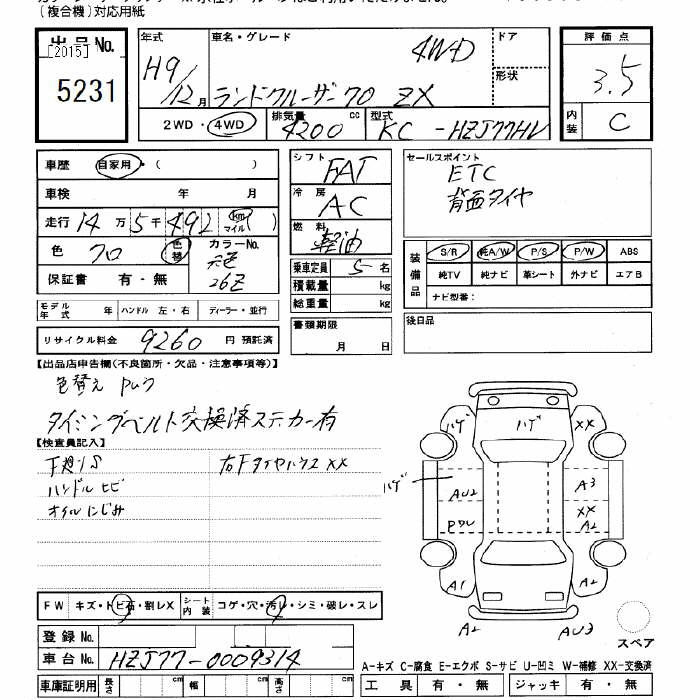 (複合機)対応用紙
出品No.
[2015]
5231
年式
H9/12月
車名・グレード
4WD
ランドクルーザー70 ZX
ドア
形状
2WD・4WD
排気量
4200
cc
型式
KC-HZJ77HV
評価点
3.5
内装
C
車歴
自家用・( )
車検
年 月
走行
14万5千492
km
マイル
( )
色
クロ
色替
カラーNo.
元色
26Z
保証書
有・無
モデル年式
年
ハンドル 左・右
ディーラー・並行
リサイクル料金
9260
円 預託済
シフト
FAT
冷房
AC
燃料
軽油
乗車定員
5名
積載量
kg
総重量
kg
書類期限
月 日
セールスポイント
ETC
背面タイヤ
装備品
S/R
純A/W
P/S
P/W
ABS
純TV
純ナビ
革シート
外ナビ
エアB
ナビ型番:
後日品
【出品店申告欄(不良箇所・欠品・注意事項等)】
色替え PWク
タイミングベルト交換済ステッカー有
【検査員記入】
下廻りS
右Fタイヤハウス XX
ハンドルヒビ
オイルにじみ
ハゲ
ハゲ
XX
ハゲ
AU2
A3
XX
A2
PワレU
A1
A2
A2
AU3
スペア
FW
キズ・トビ石・割レX
シート内装
コゲ・穴・汚レ・シミ・破レ・スレ
登録No.
車台No.
HZJ77-0009314
車庫証明用
長さ
cm
幅
cm
高さ
cm
A−キズ C−腐食 E−エクボ S−サビ U−凹ミ W−補修 XX−交換済
工具
有・無
ジャッキ
有・無